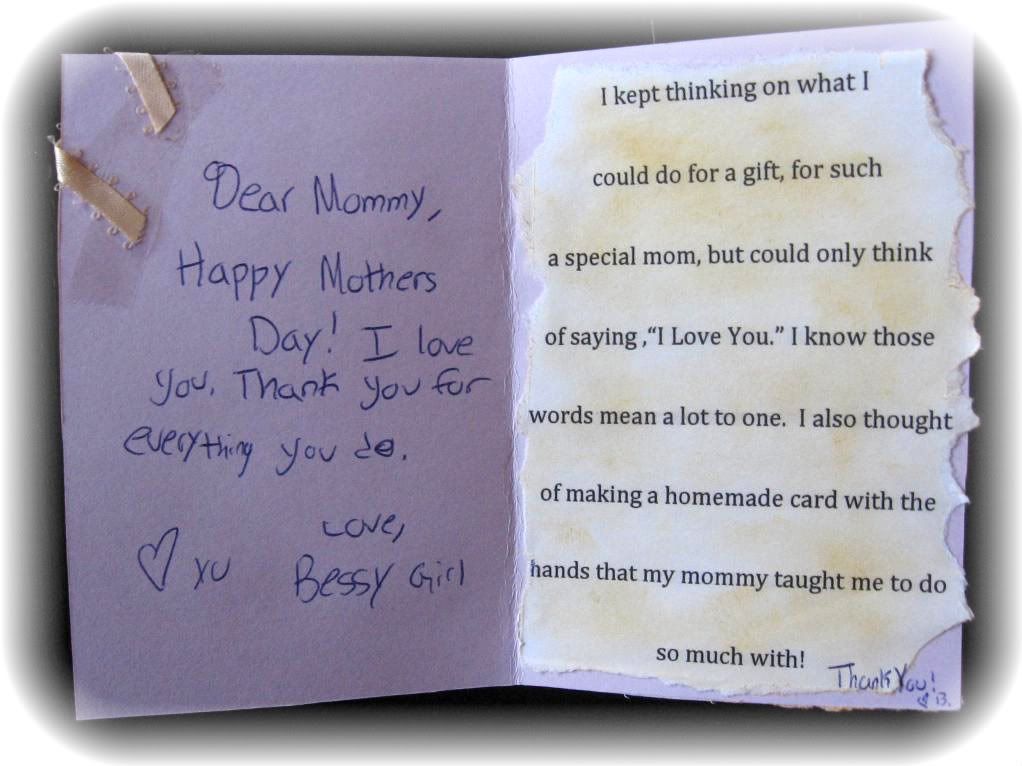 Dear Mommy,
Happy Mothers
Day! I love
you. Thank you for
everything you do.
Love,
♡ xu Bessy Girl
I kept thinking on what I
could do for a gift, for such
a special mom, but could only think
of saying ,“I Love You.” I know those
words mean a lot to one. I also thought
of making a homemade card with the
hands that my mommy taught me to do
so much with!
Thank You!
♡ B.